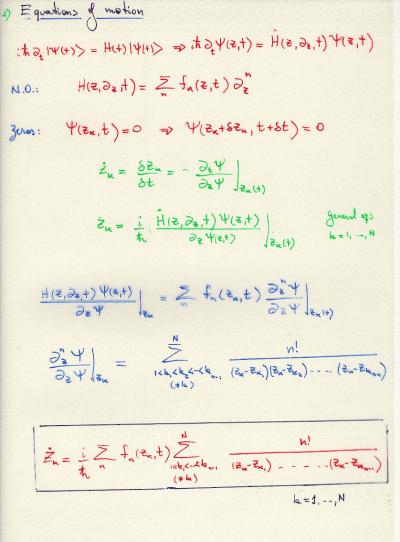 2) Equations of motion
iħ ∂ₜ|ψ(t)⟩ = H(t)|ψ(t)⟩ ⇒ iħ ∂ₜψ(z,t) = Ĥ(z,∂_z,t) ψ(z,t)
N.O.: H(z,∂_z,t) = Σ_n f_n(z,t) ∂_z^n
Zeros: ψ(z_k,t) = 0 ⇒ ψ(z_k+δz_k, t+δt) = 0
ż_k = δz_k/δt = − ∂_tψ/∂_zψ |_{z_k(t)}
ż_k = i/ħ Ĥ(z,∂_z,t)ψ(z,t)/∂_zψ(z,t) |_{z_k(t)} General eqs k=1,..,N
H(z,∂_z,t)ψ(z,t)/∂_zψ |_{z_k} = Σ_n f_n(z_k,t) ∂_z^nψ/∂_zψ |_{z_k(t)}
∂_z^nψ/∂_zψ |_{z_k} = Σ^N_{1<k_1<k_2<..<k_{n-1} (≠k)} n!/(z_k-z_{k_1})(z_k-z_{k_2}).....(z_k-z_{k_{n-1}})
ż_k = i/ħ Σ_n f_n(z_k,t) Σ^N_{1=k_1<..<k_{n-1} (≠k)} n!/(z_k-z_{k_1}).......(z_k-z_{k_{n-1}})
k=1,..,N